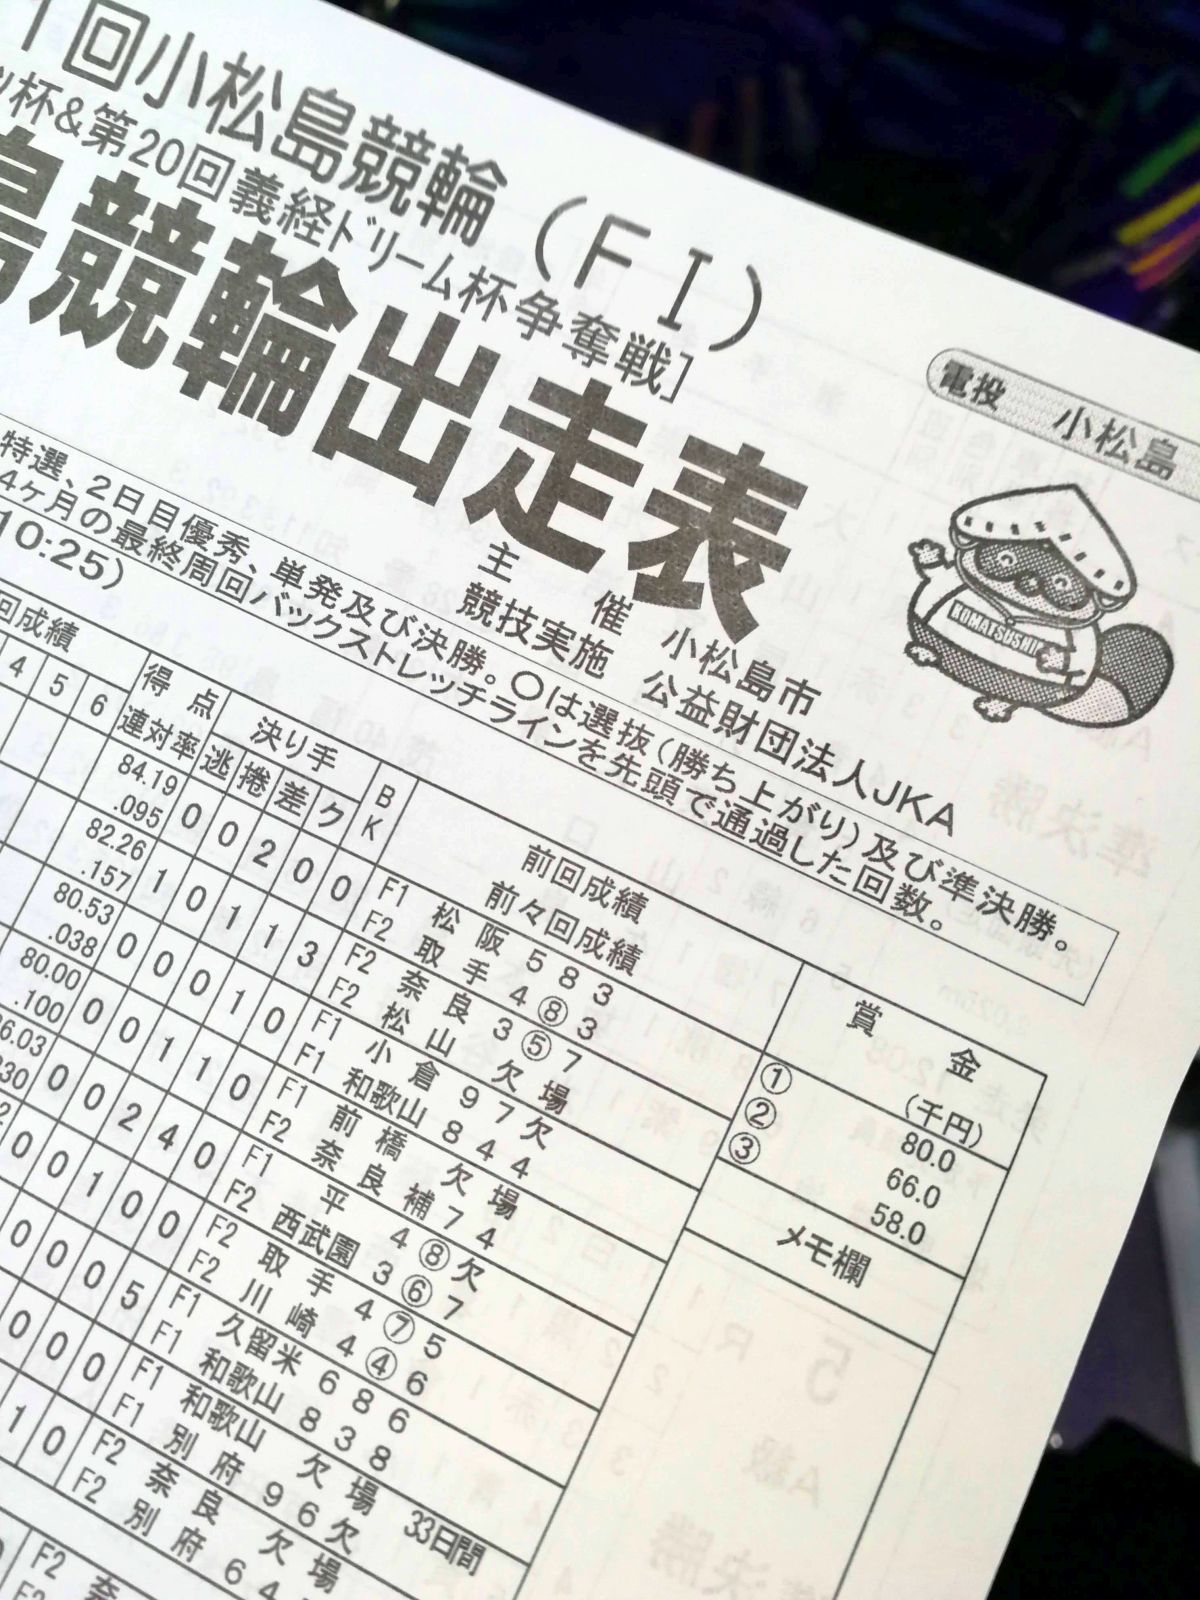 1回小松島競輪（FⅠ）
ツ杯&第20回義経ドリーム杯争奪戦]
島競輪出走表
電投 小松島
KOMATSUSHI
主催 小松島市
競技実施 公益財団法人JKA
特選、2日目優秀、単発及び決勝。○は選抜（勝ち上がり）及び準決勝。
4ケ月の最終周回バックストレッチラインを先頭で通過した回数。
10:25）
回成績 得点 決り手 BK 前回成績 賞金
4 5 6 連対率 逃 捲 差 ク 前々回成績 （千円）
84.19 0 0 2 0 0 F1 松阪 5 8 3 ① 80.0
.095 F2 取手 4 ⑧ 3 ② 66.0
82.26 1 0 1 1 3 F2 奈良 3 ⑤ 7 ③ 58.0
.157 F2 松山 欠場
メモ欄
80.53 0 0 0 1 0 F1 小倉 9 7 欠
.038 F1 和歌山 8 4 4
80.00 0 0 1 1 0 F1 前橋 欠場
.100 F2 奈良 補 7 4
6.03 0 0 2 4 0 F1 平 4 ⑧ 欠
30 F2 西武園 3 ⑥ 7
0 0 1 0 0 F2 取手 4 ⑦ 5
F2 川崎 4 ④ 6
0 0 0 5 F1 久留米 6 8 6
F1 和歌山 8 3 8
0 0 0 F1 和歌山 欠場 33日間
F1 別府 9 6 欠
1 0 F2 奈良 欠場
F2 別府 6 4
F2 奈